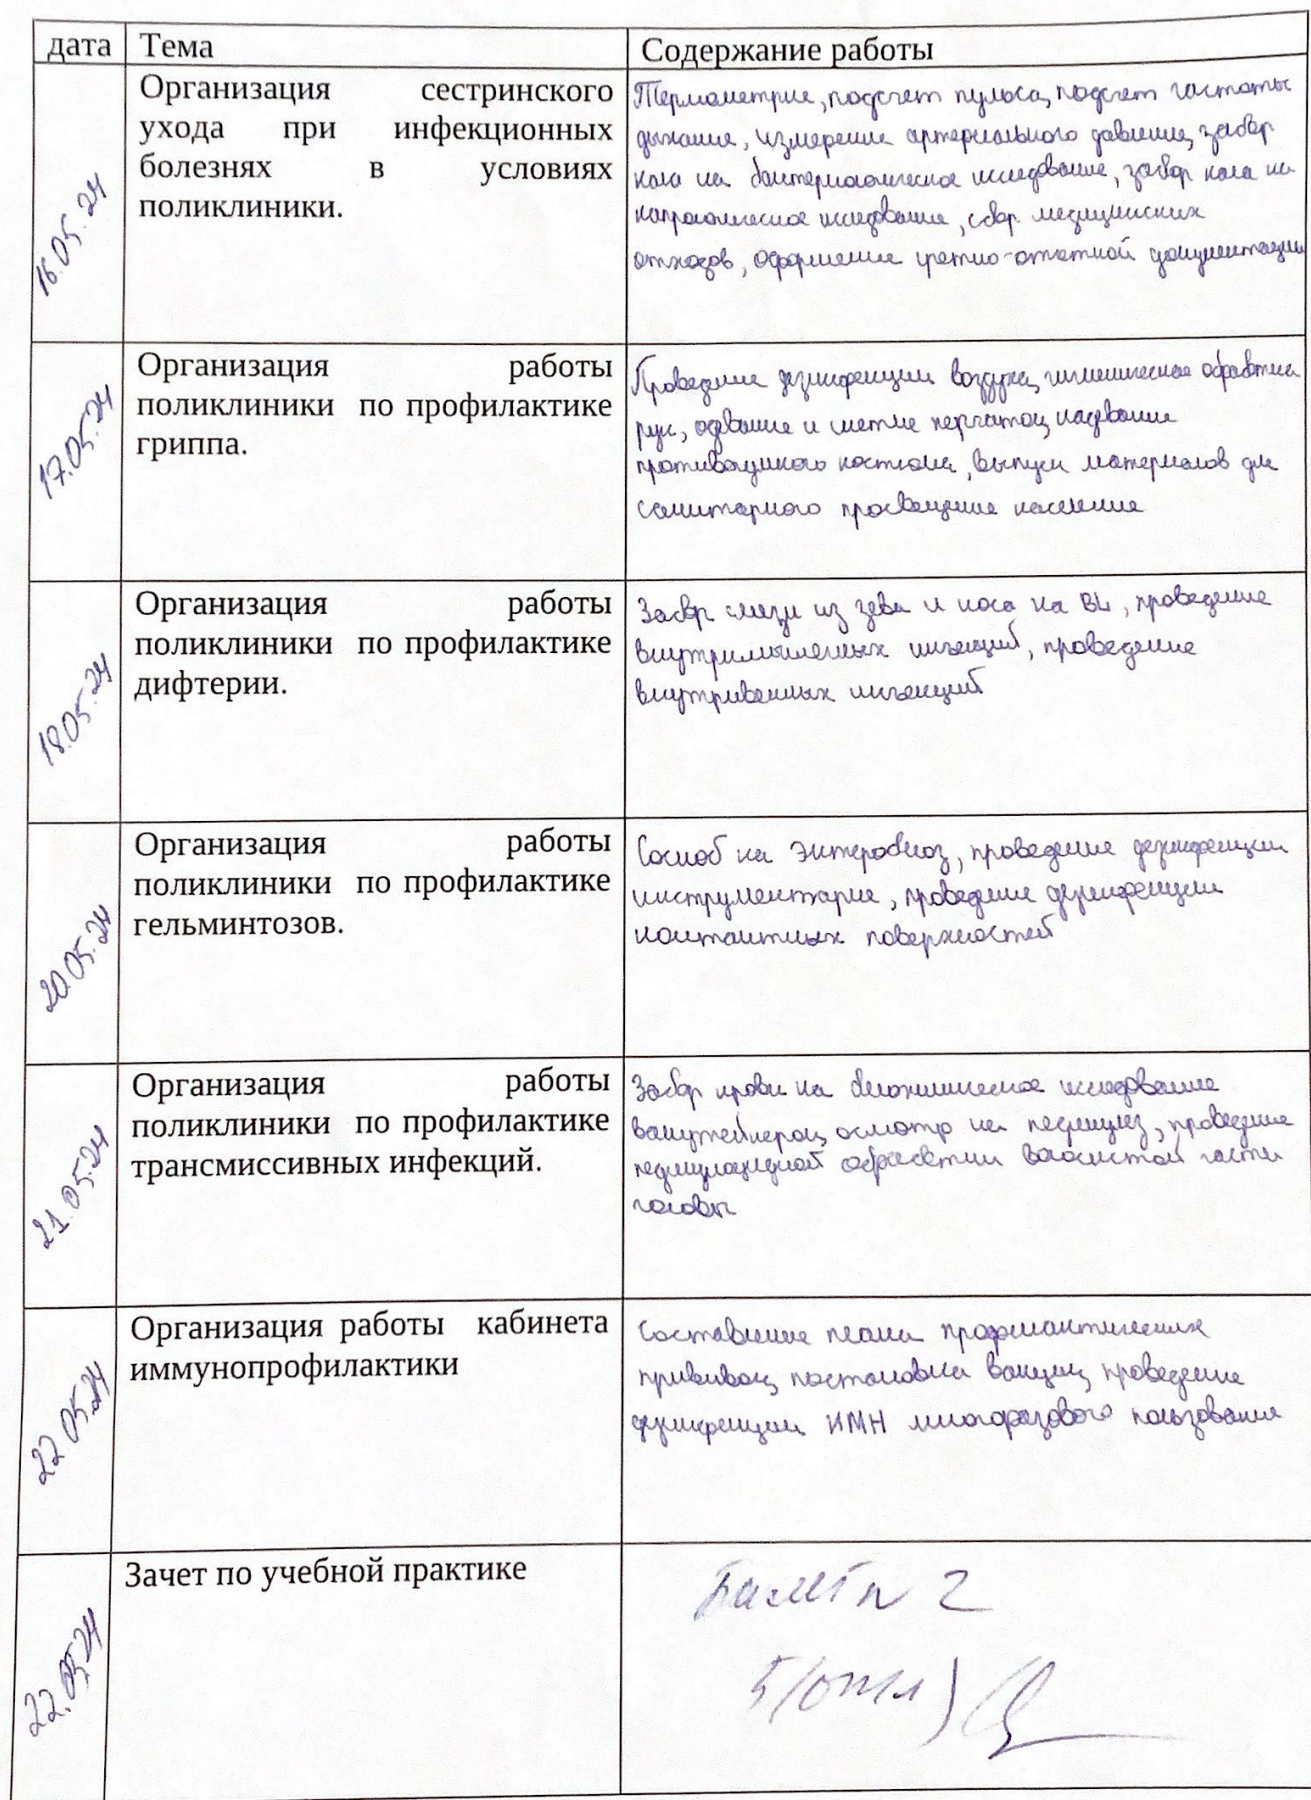 дата Тема Содержание работы
16.05.24
Организация сестринского
ухода при инфекционных
болезнях в условиях
поликлиники.
Термометрия, подсчет пульса, подсчет частоты
дыхания, измерение артериального давления, забор
кала на бактериологическое исследование, забор кала на
капрологическое исследование, сбор медицинских
отходов, оформление учетно-отчетной документации
17.05.24
Организация работы
поликлиники по профилактике
гриппа.
Проведение дезинфекции воздуха, гигиеническая обработка
рук, одевание и снятие перчаток, надевание
противочумного костюма, выпуск материалов для
санитарного просвещения населения
18.05.24
Организация работы
поликлиники по профилактике
дифтерии.
Забор слизи из зева и носа на BL, проведение
внутримышечных инъекций, проведение
внутривенных инъекций
20.05.24
Организация работы
поликлиники по профилактике
гельминтозов.
Соскоб на энтеробиоз, проведение дезинфекции
инструментария, проведение дезинфекции
контактных поверхностей
21.05.24
Организация работы
поликлиники по профилактике
трансмиссивных инфекций.
Забор крови на биохимическое исследование
вакутейнером, осмотр на педикулез, проведение
педикулицидной обработки волосистой части
головы
22.05.24
Организация работы кабинета
иммунопрофилактики
Составление плана профилактических
прививок, постановка вакцин, проведение
дезинфекции ИМН многоразового пользования
22.05.24
Зачет по учебной практике
Билет n 2
5 (отл)